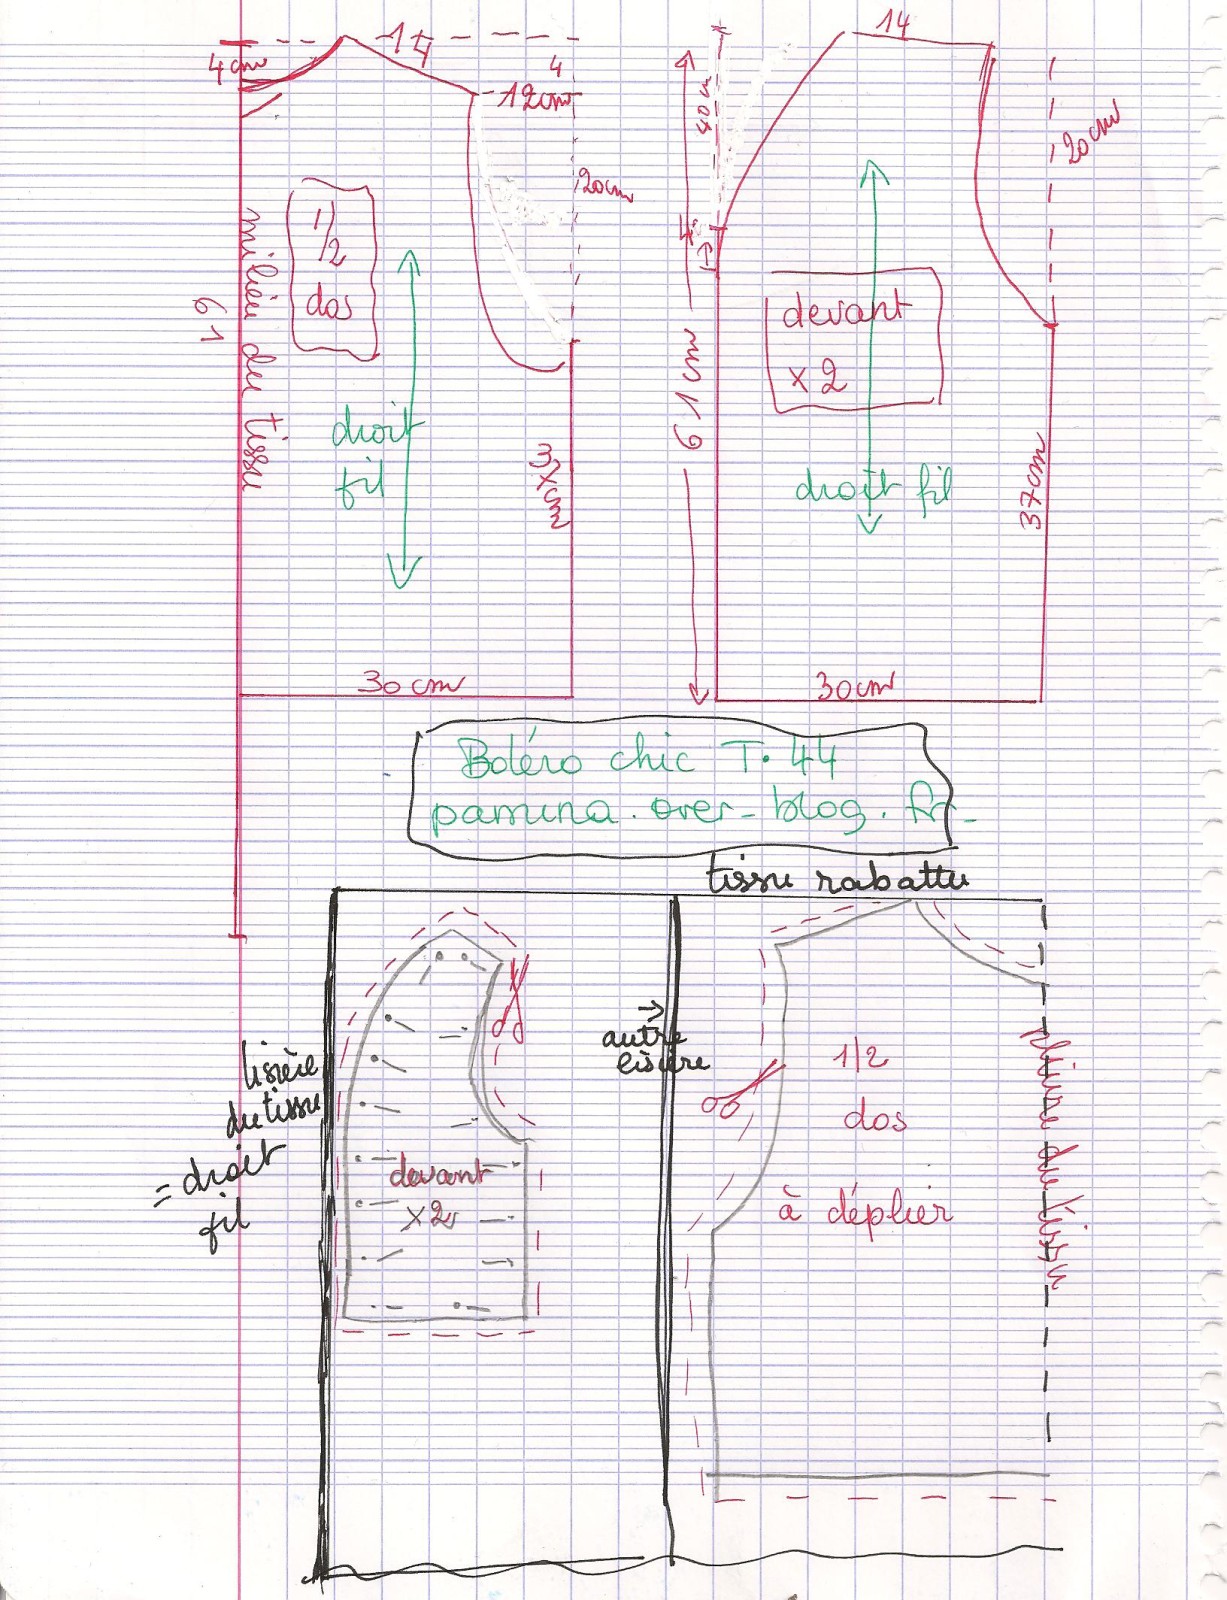 4 cm
14
4
12cm
20cm
milieu du tissu
61
1/2
dos
droit
fil
37cm
30 cm
14
40 cm
20cm
4
61 cm
devant
x 2
droit fil
37cm
30cm
Boléro chic T. 44
pamina.over-blog.fr
tissu rabattu
lisière
du tissu
= droit
fil
devant
x2
→
autre
lisière
1/2
dos
à déplier
pliure du tissu